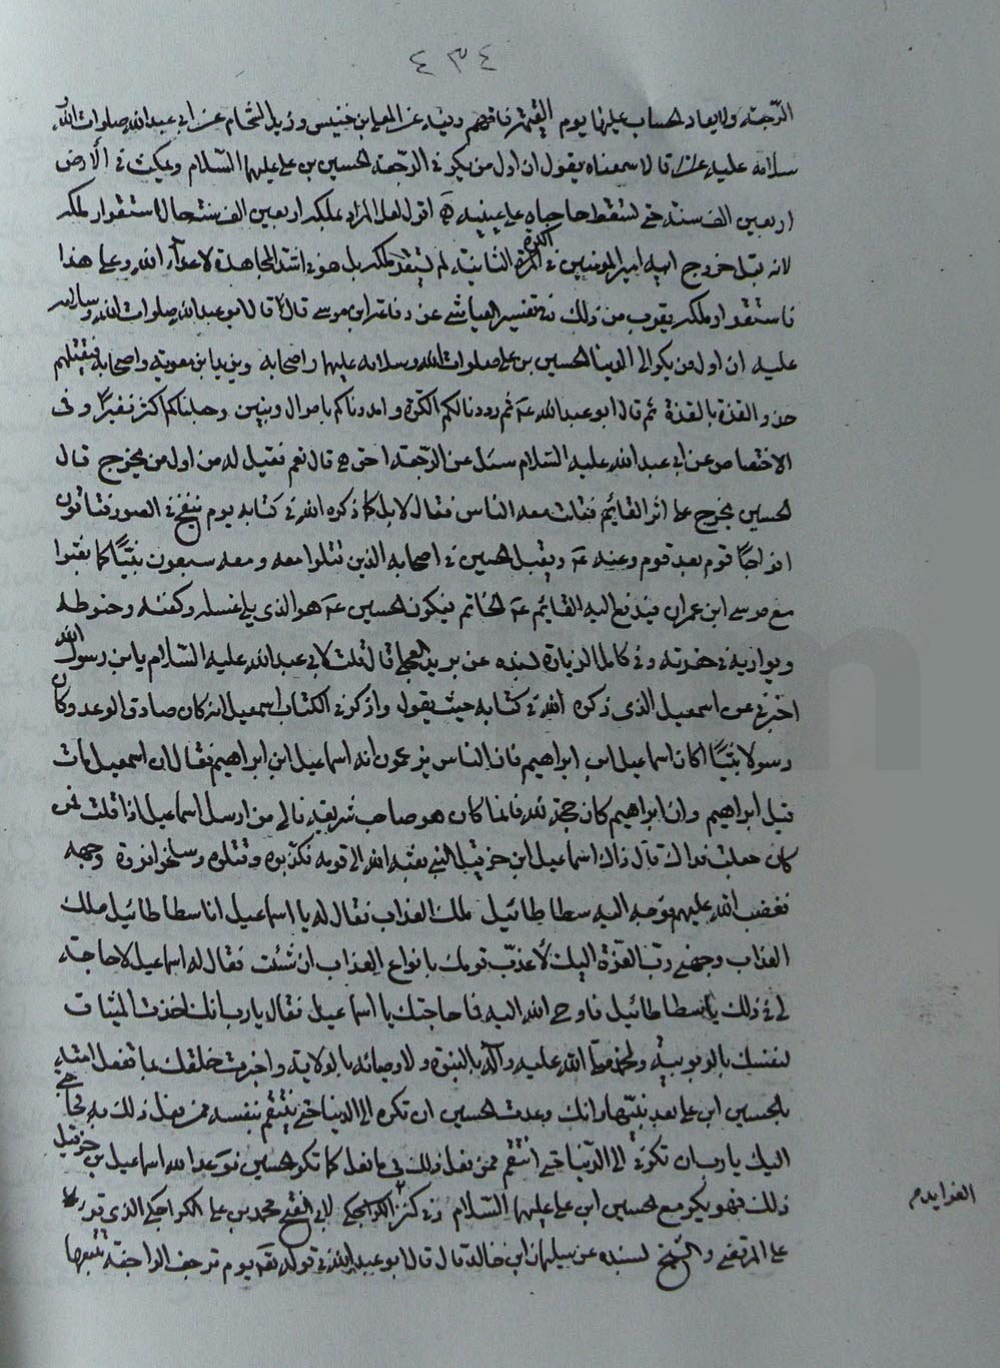 ٤٣٤
الرجعة ولا يعاد الحساب عليها يوم القيمة فافهم وفيه عن المعلى بن خنيس وزيد الشحام عن ابي عبدالله صلوات الله و
سلامه عليه قالا سمعناه يقول ان اول من يكر في الرجعة الحسين بن علي عليهما السلام ويمكث في الأرض
اربعين الف سنة حتى تسقط حاجباه على عينيه اقول لعل المراد بملكه اربعين الف سنة حال استقرار ملكه
لانه قبل خروج ابيه امير المومنين في الكرة الثانية لم يستقر ملكه بل هو في اشد المجاهدة لاعداء الله وعلى هذا
فاستقرار ملكه يقرب من ذلك تفسير العياشي عن رفاعة ابن موسى قال قال ابو عبدالله صلوات الله وسلامه
عليه ان اول من يكر الى الدنيا الحسين بن علي صلوات الله وسلامه عليهما واصحابه ويزيد ابن معوية واصحابه فيقتلهم
حذو القذة بالقذة ثم قال ابو عبدالله عه ثم رددنا لكم الكرة وامددناكم باموال وبنين وجعلناكم اكثر نفيرا وفي
الاختصاص عن ابي عبدالله عليه السلام سئل عن الرجعة احق هي قال نعم فقيل له من اول من يخرج قال
الحسين يخرج على اثر القائم فقلت معه الناس فقال لا بل كما ذكره الله في كتابه يوم ينفخ في الصور فتاتون
افواجا قوم بعد قوم وعنه عه ويقبل الحسين في اصحابه الذين قتلوا معه ومعه سبعون نبيا كما بعثوا
مع موسى ابن عمران فيدفع اليه القائم عه الخاتم فيكون الحسين عه هو الذي يلي غسله وكفنه وحنوطه
ويواريه في حفرته وفي كامل الزيارة بسنده عن بريد العجلي قال قلت لابي عبدالله عليه السلام يابن رسول الله
اخبرني عن اسمعيل الذي ذكره الله في كتابه حيث يقول واذكر في الكتاب اسمعيل انه كان صادق الوعد وكان
رسولا نبيا اكان اسماعيل ابن ابراهيم فان الناس يزعمون انه اسماعيل ابن ابراهيم فقال ان اسمعيل مات
قبل ابراهيم وان ابراهيم كان حجة لله قائما كان هو صاحب شريعة فالى من ارسل اسماعيل اذا قلت فمن
كان جعلت فداك قال ذاك اسماعيل ابن حزقيل النبي بعثه الله الى قومه فكذبوه وقتلوه وسلخوا فروة وجهه
فغضب الله عليهم فوجه اليه سطاطائيل ملك العذاب فقال له يا اسماعيل انا سطاطائيل ملك
العذاب وجهني رب العزة اليك لأعذب قومك بانواع العذاب ان شئت فقال له اسماعيل لا حاجة
لي في ذلك يا سطاطائيل فاوحى الله اليه فما حاجتك يا اسماعيل فقال يا رب انك اخذت الميثاق
لنفسك بالربوبية ولمحمد صلى الله عليه وآله بالنبوة ولاوصيائه بالولاية واخبرت خلقك بما تفعل امته
بالحسين ابن علي بعد نبيها وانك وعدت الحسين ان تكره الى الدنيا حتى ينتقم بنفسه ممن فعل ذلك به فحاجتي
اليك يا رب ان تكرني الى الدنيا حتى انتقم ممن فعل ذلك بي ما فعل كما تكر الحسين فوعد الله اسماعيل بن حزقيل
ذلك فهو يكر مع الحسين ابن علي عليهما السلام وفي كنز الكراجكي لابي الفتح محمد بن علي الكراجكي الذي قرء
الفوايد م
على المرتضى والشيخ بسنده عن سليمان ابن خالد قال قال ابو عبدالله في قوله تعه يوم ترجف الراجفة تتبعها